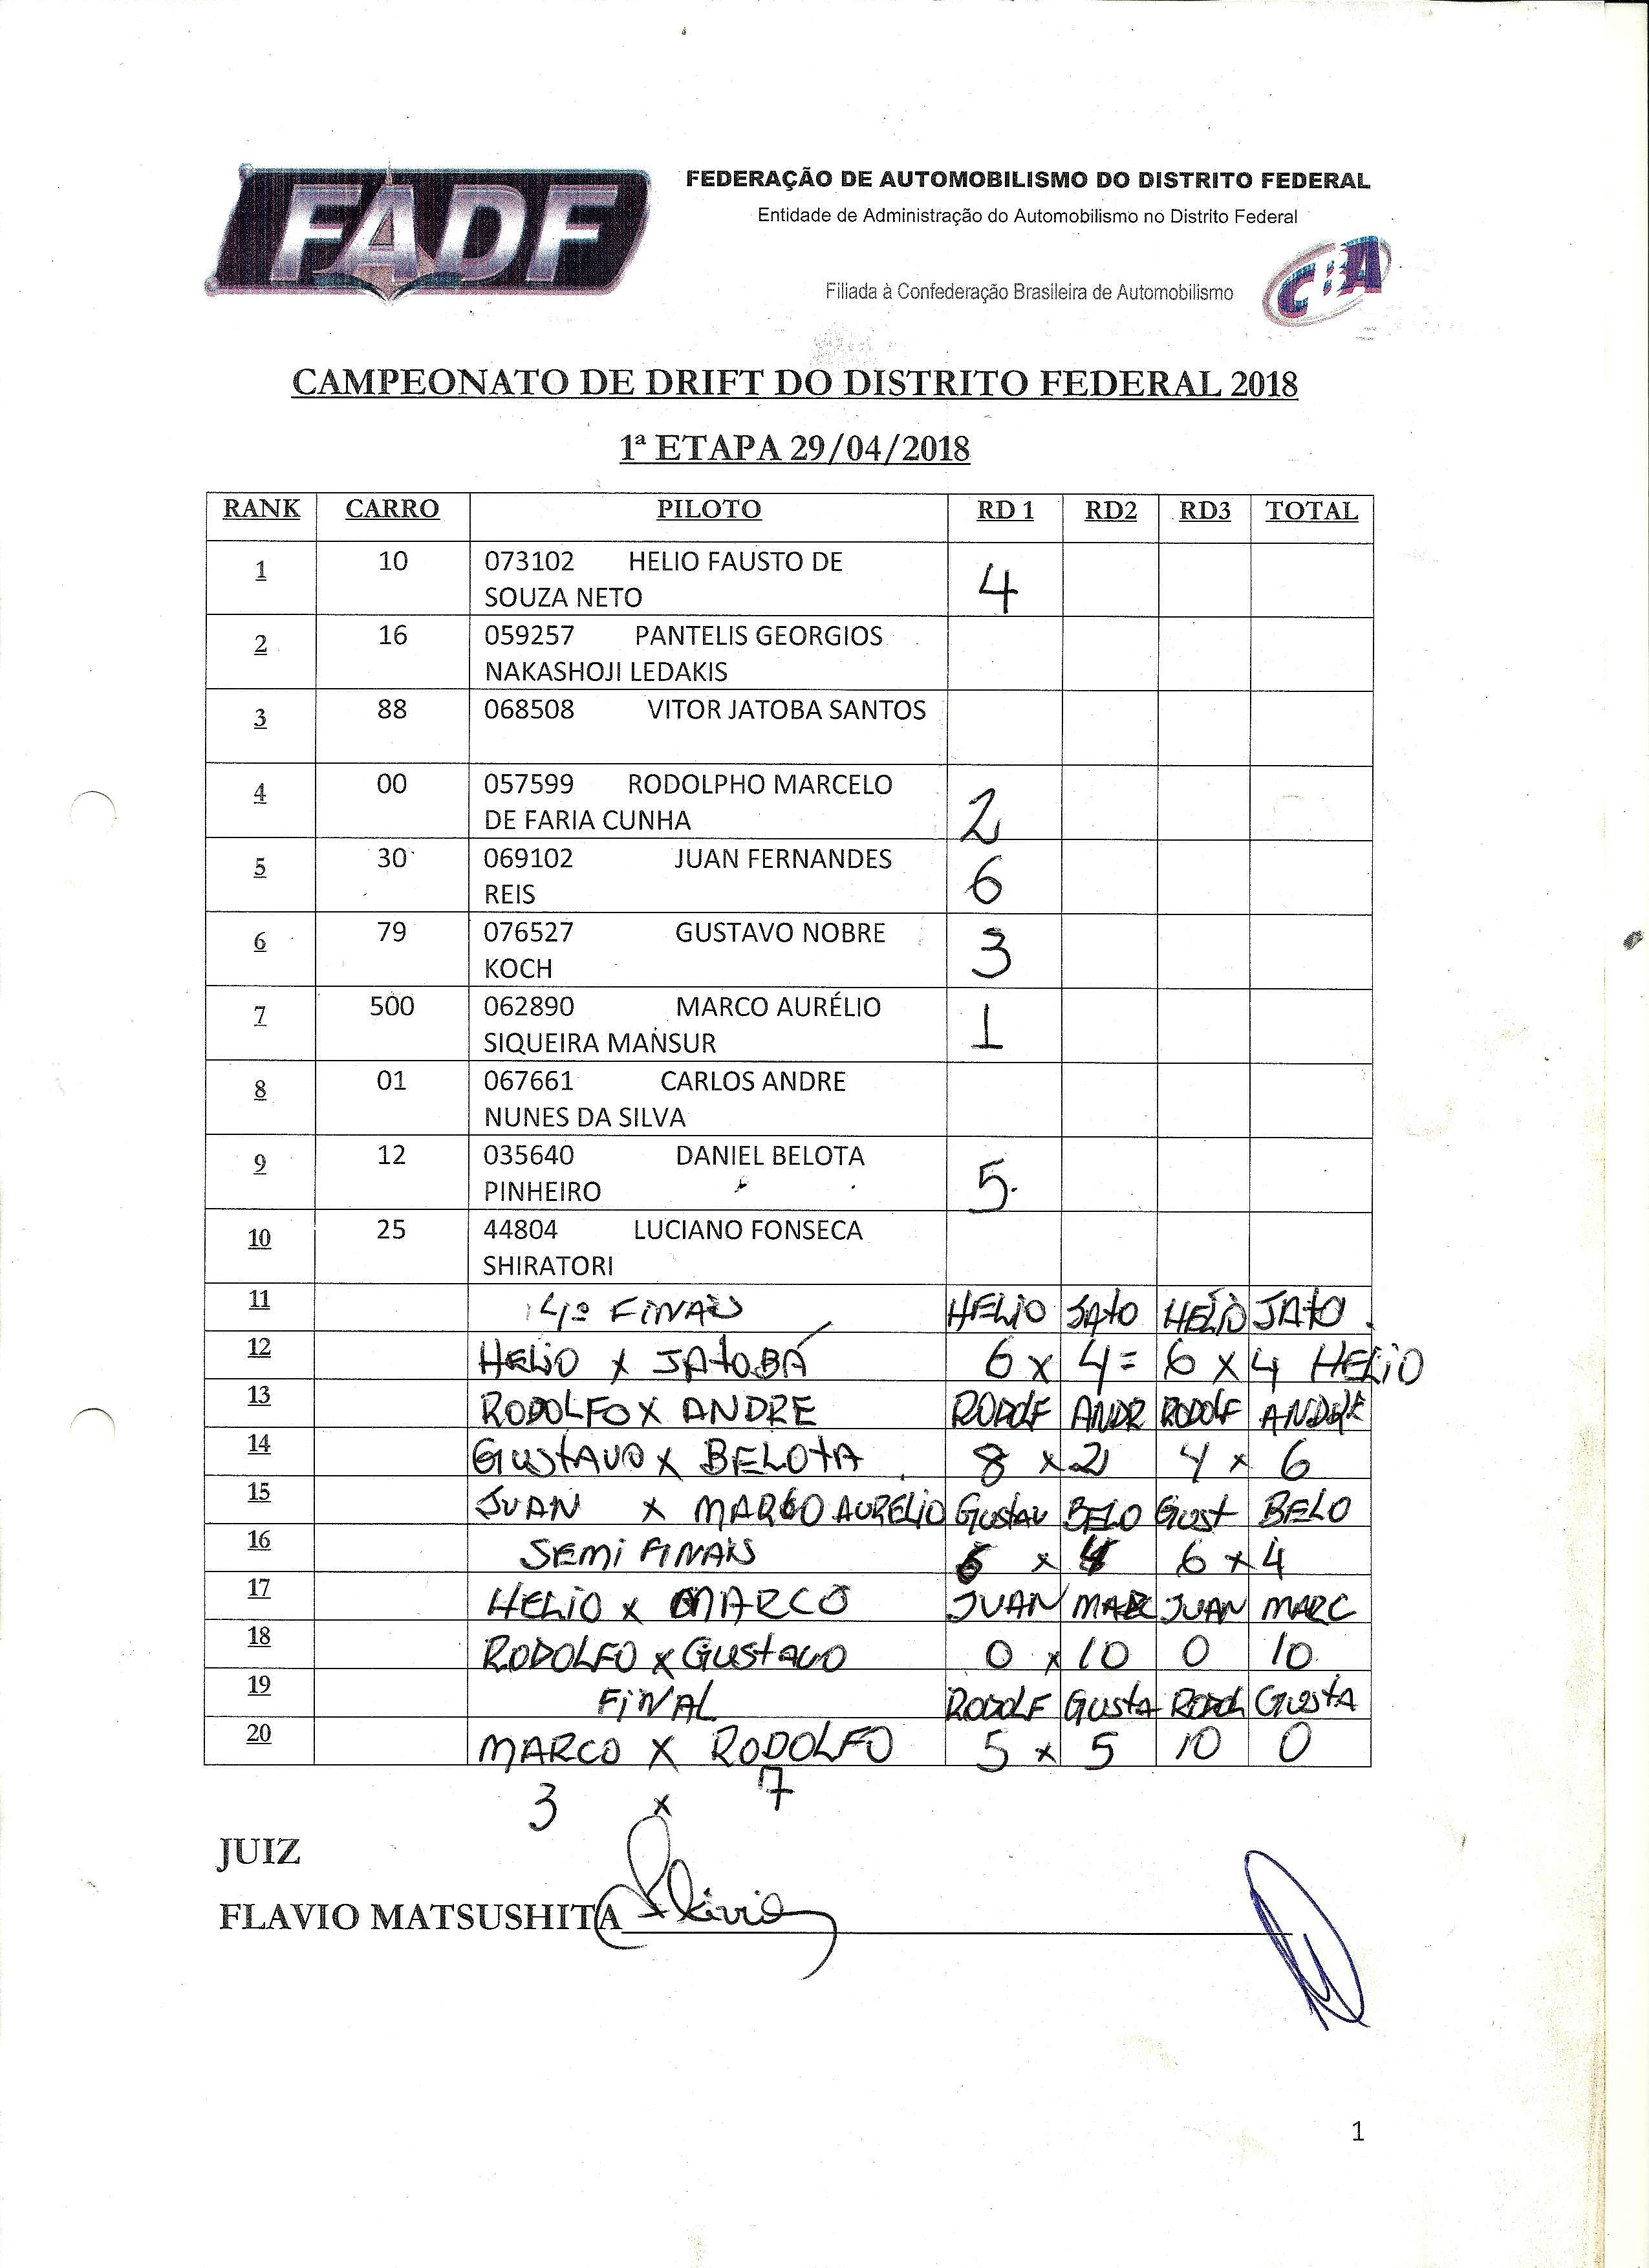 FADF
FEDERAÇÃO DE AUTOMOBILISMO DO DISTRITO FEDERAL
Entidade de Administração do Automobilismo no Distrito Federal
Filiada à Confederação Brasileira de Automobilismo
CBA
CAMPEONATO DE DRIFT DO DISTRITO FEDERAL 2018
1ª ETAPA 29/04/2018
RANK CARRO PILOTO RD 1 RD2 RD3 TOTAL
1 10 073102 HELIO FAUSTO DE
SOUZA NETO 4
2 16 059257 PANTELIS GEORGIOS
NAKASHOJI LEDAKIS
3 88 068508 VITOR JATOBA SANTOS
4 00 057599 RODOLPHO MARCELO
DE FARIA CUNHA 2
5 30 069102 JUAN FERNANDES
REIS 6
6 79 076527 GUSTAVO NOBRE
KOCH 3
7 500 062890 MARCO AURÉLIO
SIQUEIRA MANSUR 1
8 01 067661 CARLOS ANDRE
NUNES DA SILVA
9 12 035640 DANIEL BELOTA
PINHEIRO 5
10 25 44804 LUCIANO FONSECA
SHIRATORI
11 4º FINAIS HELIO JATO HELIO JATO
12 HELIO X JATOBÁ 6 x 4 = 6 x 4 HELIO
13 RODOLFO X ANDRE RODOLF ANDR RODOLF ANDRE
14 GUSTAVO X BELOTA 8 x 2 4 x 6
15 JUAN X MARCO AURELIO GUSTAV BELO GUST BELO
16 SEMI FINAIS 6 x 4 6 x 4
17 HELIO X MARCO JUAN MARC JUAN MARC
18 RODOLFO X GUSTAVO 0 x 10 0 10
19 FINAL RODOLF GUSTA RODOL GUSTA
20 MARCO X RODOLFO 5 x 5 10 0
3 x 7
JUIZ
FLAVIO MATSUSHITA Flávio
1